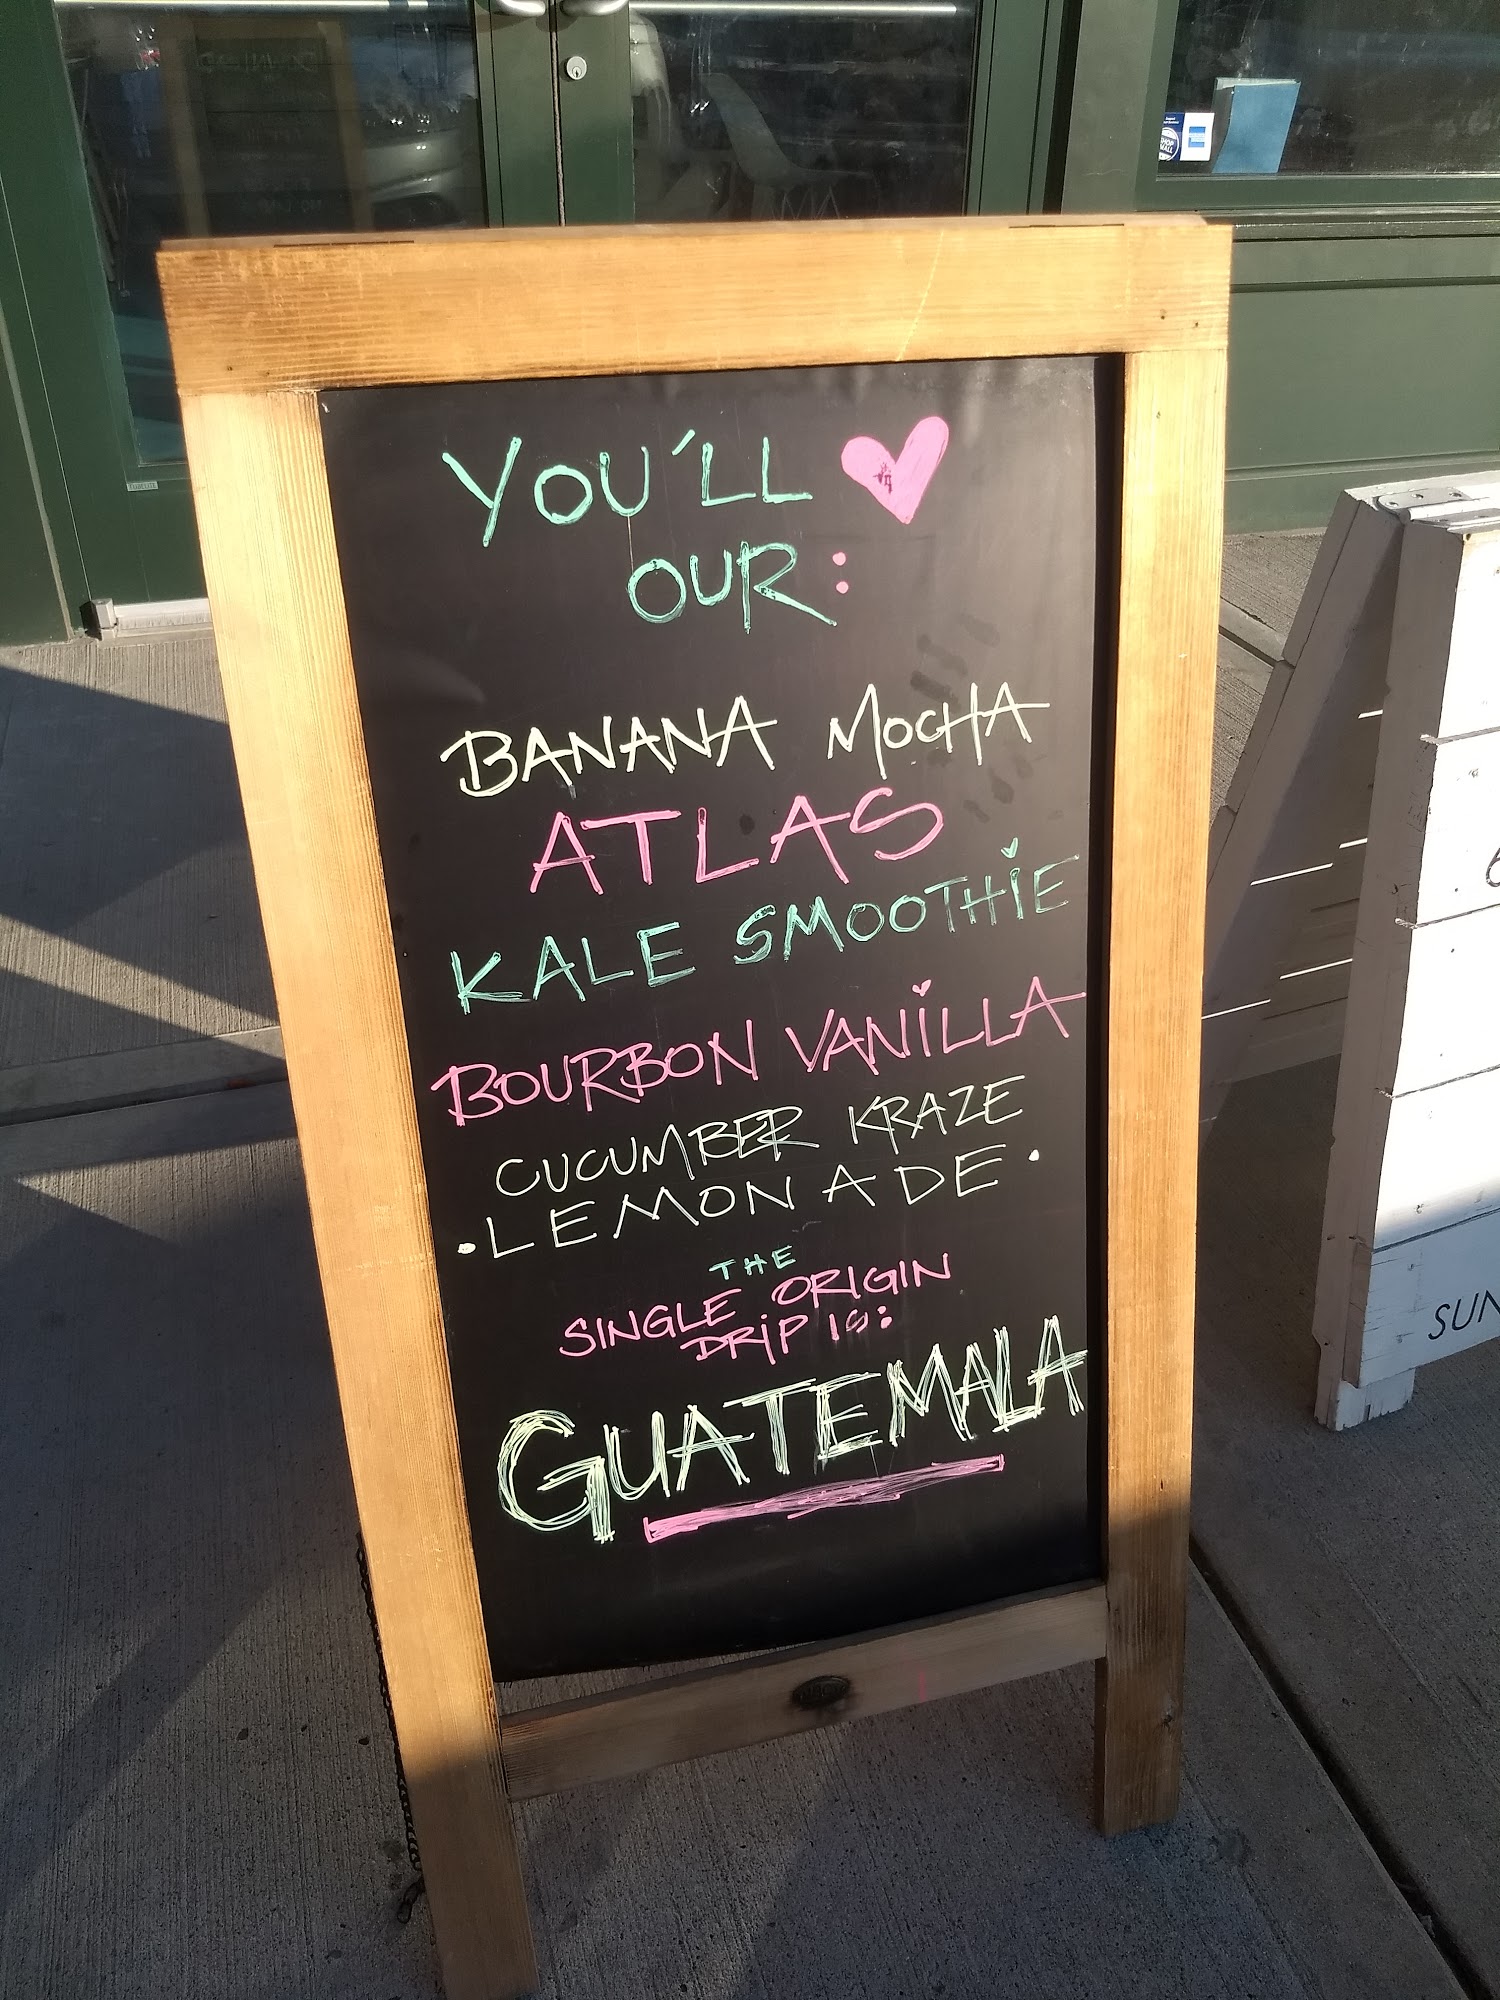 YOU'LL ♥
OUR:
BANANA MOCHA
ATLAS
KALE SMOOTHIE
BOURBON VANILLA
CUCUMBER KRAZE
·LEMONADE·
THE
SINGLE ORIGIN
DRIP IS:
GUATEMALA
SUN